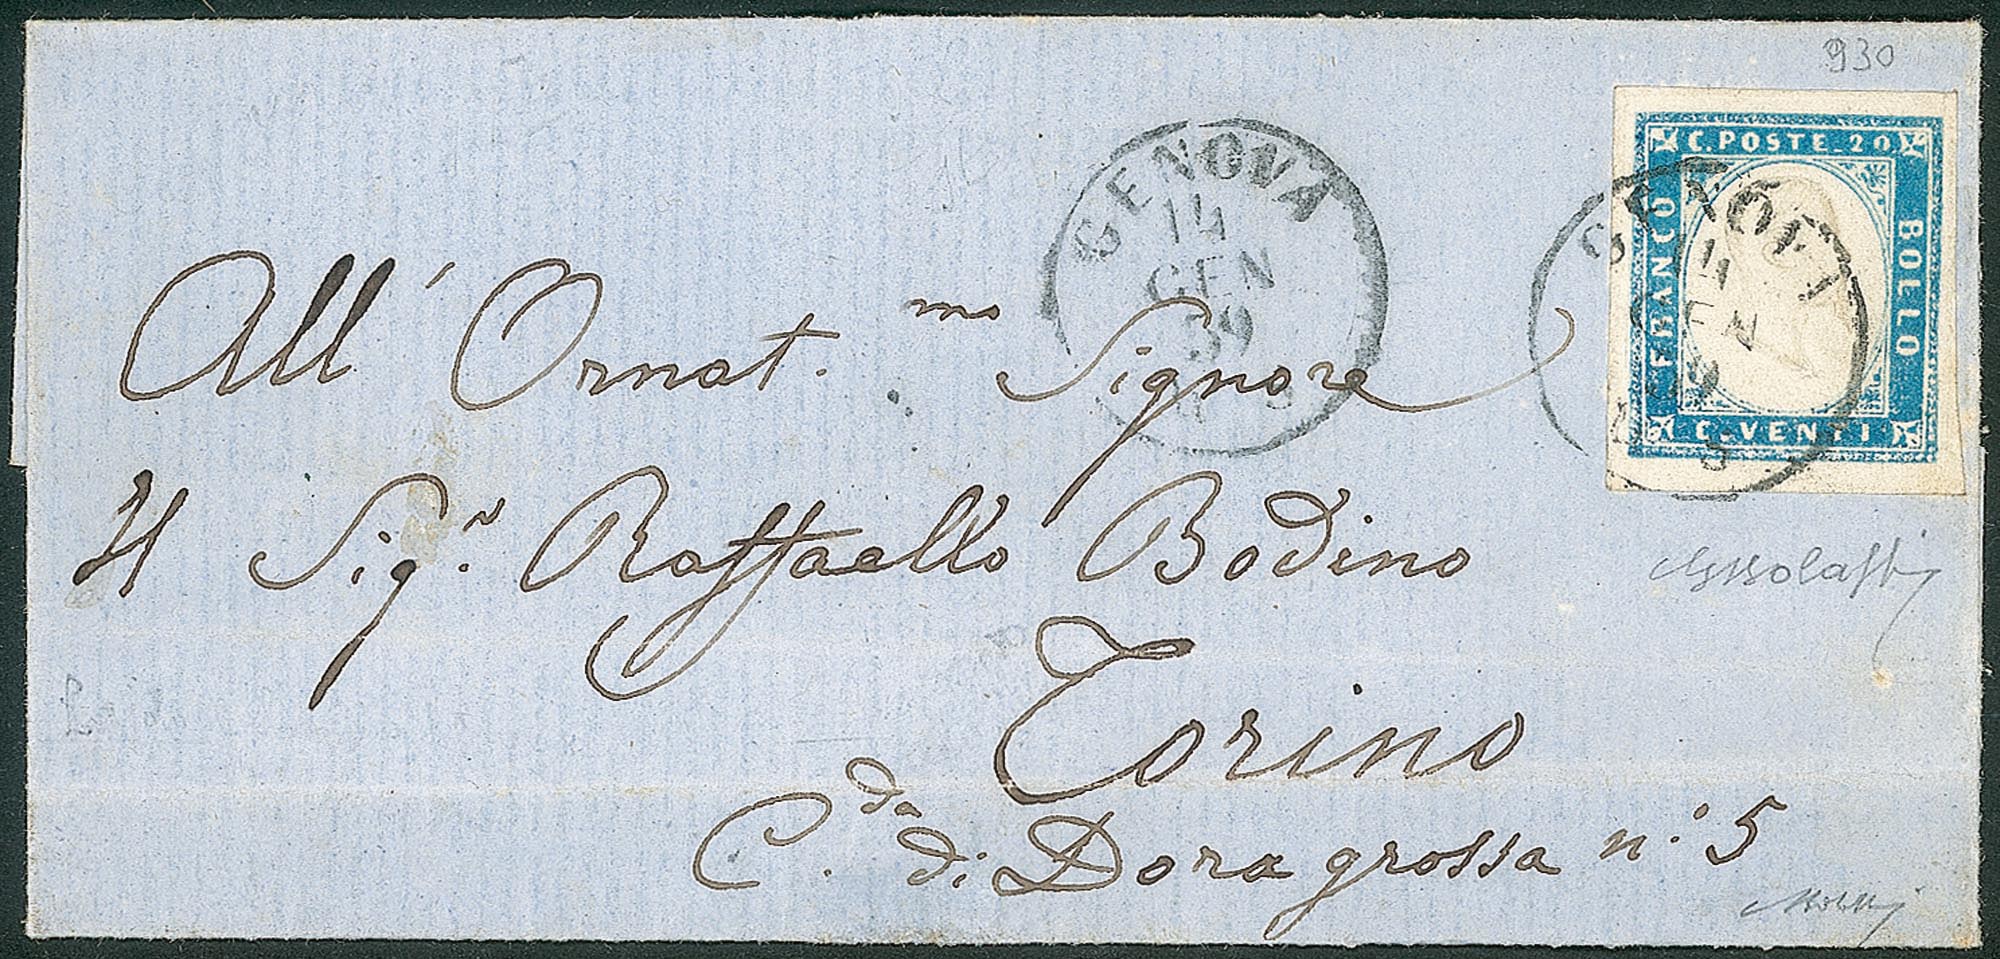 930
C. POSTE. 20
FRANCO
BOLLO
C. VENTI
GENOVA
14
GEN
59
GENOVA
14
GEN
59
All' Ornat.mo Signore
Il Sig.r Raffaello Bodino
Torino
C.da di Doragrossa n.o 5